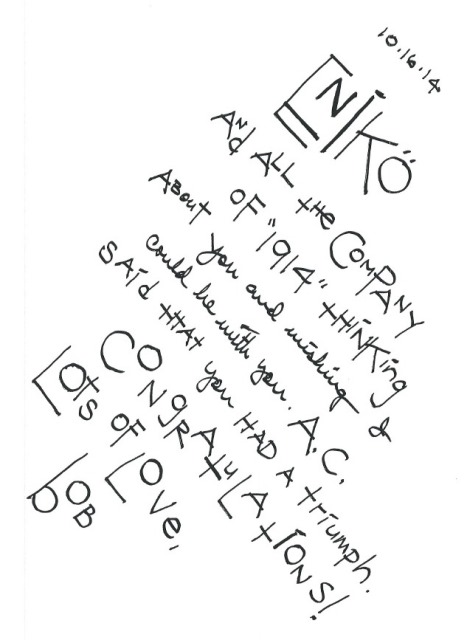 10.16.14
NiKÖ
AND ALL tHE COMPANY
OF "1914" tHiNKiNg OF
About you and wishing I
could be with you. A.C.
SAid tHAt you HAD A triumph.
CONgRAtULAtiONS!
LOts OF LOVE,
BOB